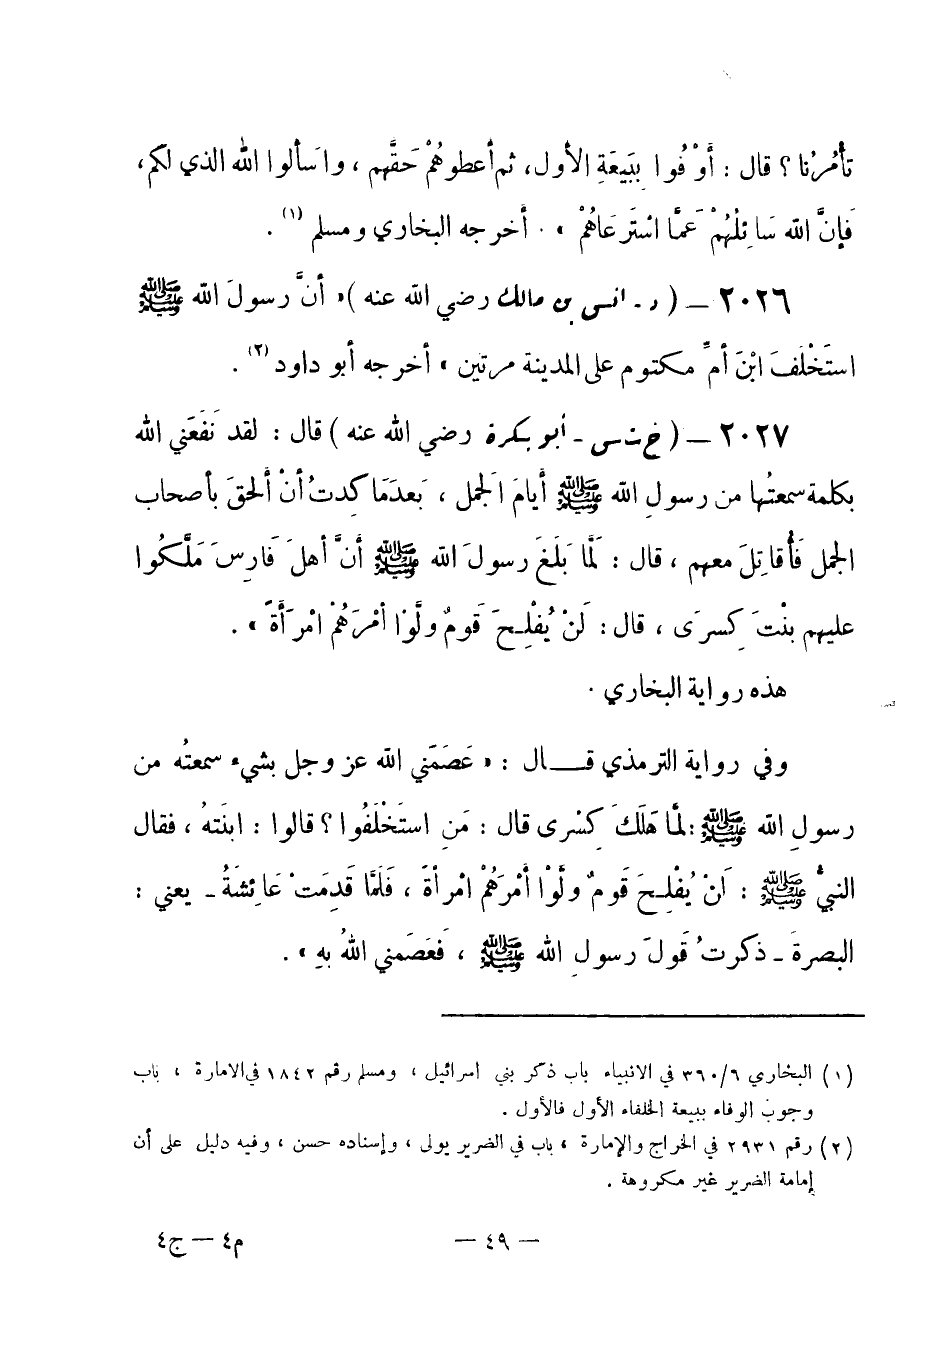 تأمُرُنا ؟ قال : أَوْفُوا بِبَيعَةِ الأول، ثم أعطوهُمْ حَقَّهم ، واسَألوا الله الذي لكم،
فَإنَّ الله سَائِلُهُمْ عَمَّا اسْتَرعَاهُمْ » . أخرجه البخاري ومسلم (١) .
٢٠٢٦ ــ ( د - أنس بن مالك رضي الله عنه )« أنَّ رسولَ الله ﷺ
استَخْلَفَ ابْنَ أمِّ مكتوم على المدينة مرتين » أخرجه أبو داود (٢) .
٢٠٢٧ ــ ( خ ت س - أبو بكرة رضي الله عنه ) قال : لقد نَفَعَني الله
بكلمة سمعتُها من رسولِ الله ﷺ أيامَ الجمل ، بَعدَمَا كِدتُ أنْ ألحقَ بأصحاب
الجمل فَأُقاتِلَ معهم ، قال : لَمَّا بَلَغَ رسولَ الله ﷺ أنَّ أهلَ فَارِسَ مَلَّكُوا
عليهم بنْتَ كِسرَى ، قال : لَنْ يُفْلِحَ قَومٌ ولَّوْا أمْرَهُمْ امْرَأةً » .
هذه رواية البخاري .
وفي رواية الترمذي قـــال : « عَصَمَني الله عز وجل بشيء سمعتُه من
رسولِ الله ﷺ :لمَّا هَلَكَ كِسْرى قال : مَنِ استَخْلَفُوا ؟ قالوا : ابنَتهُ ، فقال
النبيُّ ﷺ : لَنْ يُفْلِحَ قَومٌ ولَّوْا أمْرَهُمْ امرأةً ، فَلَمَّا قَدِمَتْ عَائِشَةُ ـ يعني :
البصرةَ ـ ذكرتُ قَولَ رسولِ الله ﷺ ، فَعَصَمني اللهُ بهِ » .
(١) البخاري ٣٦٠/٦ في الانبياء باب ذكر بني اسرائيل ، ومسلم رقم ١٨٤٢ في الامارة ، باب
وجوب الوفاء ببيعة الخلفاء الأول فالأول .
(٢) رقم ٢٩٣١ في الخراج والإمارة ، باب في الضرير يولى ، وإسناده حسن ، وفيه دليل على أن
إمامة الضرير غير مكروهة .
ــ ٤٩ ــ
م٤ ــ ج٤